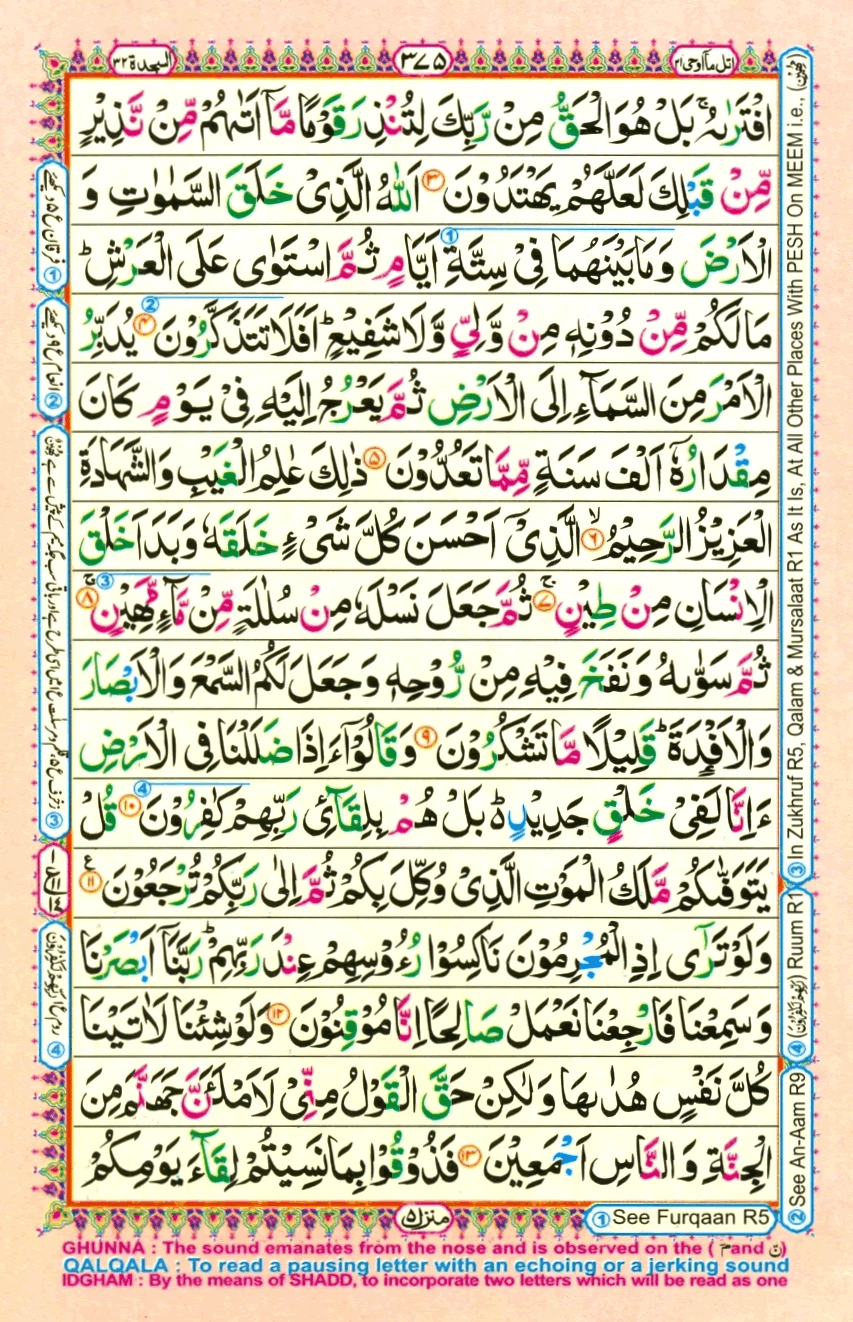 السجدة ۳۲
۳۷۵
اتل ما اوحی ۲۱
افْتَرٰىهُ ۚ بَلْ هُوَ الْحَقُّ مِنْ رَّبِّكَ لِتُنْذِرَ قَوْمًا مَّاۤ اَتٰىهُمْ مِّنْ نَّذِیْرٍ
مِّنْ قَبْلِكَ لَعَلَّهُمْ یَهْتَدُوْنَ ۳ اَللّٰهُ الَّذِیْ خَلَقَ السَّمٰوٰتِ وَ
الْاَرْضَ وَمَا بَیْنَهُمَا فِیْ سِتَّةِ اَیَّامٍ ثُمَّ اسْتَوٰی عَلَی الْعَرْشِ ؕ
مَا لَكُمْ مِّنْ دُوْنِهٖ مِنْ وَّلِیٍّ وَّلَا شَفِیْعٍ ؕ اَفَلَا تَتَذَكَّرُوْنَ ۴ یُدَبِّرُ
الْاَمْرَ مِنَ السَّمَآءِ اِلَی الْاَرْضِ ثُمَّ یَعْرُجُ اِلَیْهِ فِیْ یَوْمٍ كَانَ
مِقْدَارُهٗۤ اَلْفَ سَنَةٍ مِّمَّا تَعُدُّوْنَ ۵ ذٰلِكَ عٰلِمُ الْغَیْبِ وَالشَّهَادَةِ
الْعَزِیْزُ الرَّحِیْمُ ۶ الَّذِیْۤ اَحْسَنَ كُلَّ شَیْءٍ خَلَقَهٗ وَبَدَاَ خَلْقَ
الْاِنْسَانِ مِنْ طِیْنٍ ۷ ثُمَّ جَعَلَ نَسْلَهٗ مِنْ سُلٰلَةٍ مِّنْ مَّآءٍ مَّهِیْنٍ ۸
ثُمَّ سَوّٰىهُ وَنَفَخَ فِیْهِ مِنْ رُّوْحِهٖ وَجَعَلَ لَكُمُ السَّمْعَ وَالْاَبْصَارَ
وَالْاَفْـِٕدَةَ ؕ قَلِیْلًا مَّا تَشْكُرُوْنَ ۹ وَقَالُوْۤا ءَاِذَا ضَلَلْنَا فِی الْاَرْضِ
ءَاِنَّا لَفِیْ خَلْقٍ جَدِیْدٍ ؕ۬ بَلْ هُمْ بِلِقَآئِ رَبِّهِمْ كٰفِرُوْنَ ۱۰ قُلْ
یَتَوَفّٰىكُمْ مَّلَكُ الْمَوْتِ الَّذِیْ وُكِّلَ بِكُمْ ثُمَّ اِلٰی رَبِّكُمْ تُرْجَعُوْنَ ۱۱
وَلَوْ تَرٰۤی اِذِ الْمُجْرِمُوْنَ نَاكِسُوْا رُءُوْسِهِمْ عِنْدَ رَبِّهِمْ ؕ رَبَّنَاۤ اَبْصَرْنَا
وَسَمِعْنَا فَارْجِعْنَا نَعْمَلْ صَالِحًا اِنَّا مُوْقِنُوْنَ ۱۲ وَلَوْ شِئْنَا لَاٰتَیْنَا
كُلَّ نَفْسٍ هُدٰىهَا وَلٰكِنْ حَقَّ الْقَوْلُ مِنِّیْ لَاَمْلَـَٔنَّ جَهَنَّمَ مِنَ
الْجِنَّةِ وَالنَّاسِ اَجْمَعِیْنَ ۱۳ فَذُوْقُوْا بِمَا نَسِیْتُمْ لِقَآءَ یَوْمِكُمْ
منزل ۵
① See Furqaan R5
② See An-Aam R9
③ In Zukhruf R5, Qalam & Mursalaat R1 As It Is, At All Other Places With PESH On MEEM i.e.,
④ Ruum R1
① فرقان ع ۵ دیکھئے
② انعام ع ۹ دیکھئے
GHUNNA : The sound emanates from the nose and is observed on the ( م and ن )
QALQALA : To read a pausing letter with an echoing or a jerking sound
IDGHAM : By the means of SHADD, to incorporate two letters which will be read as one